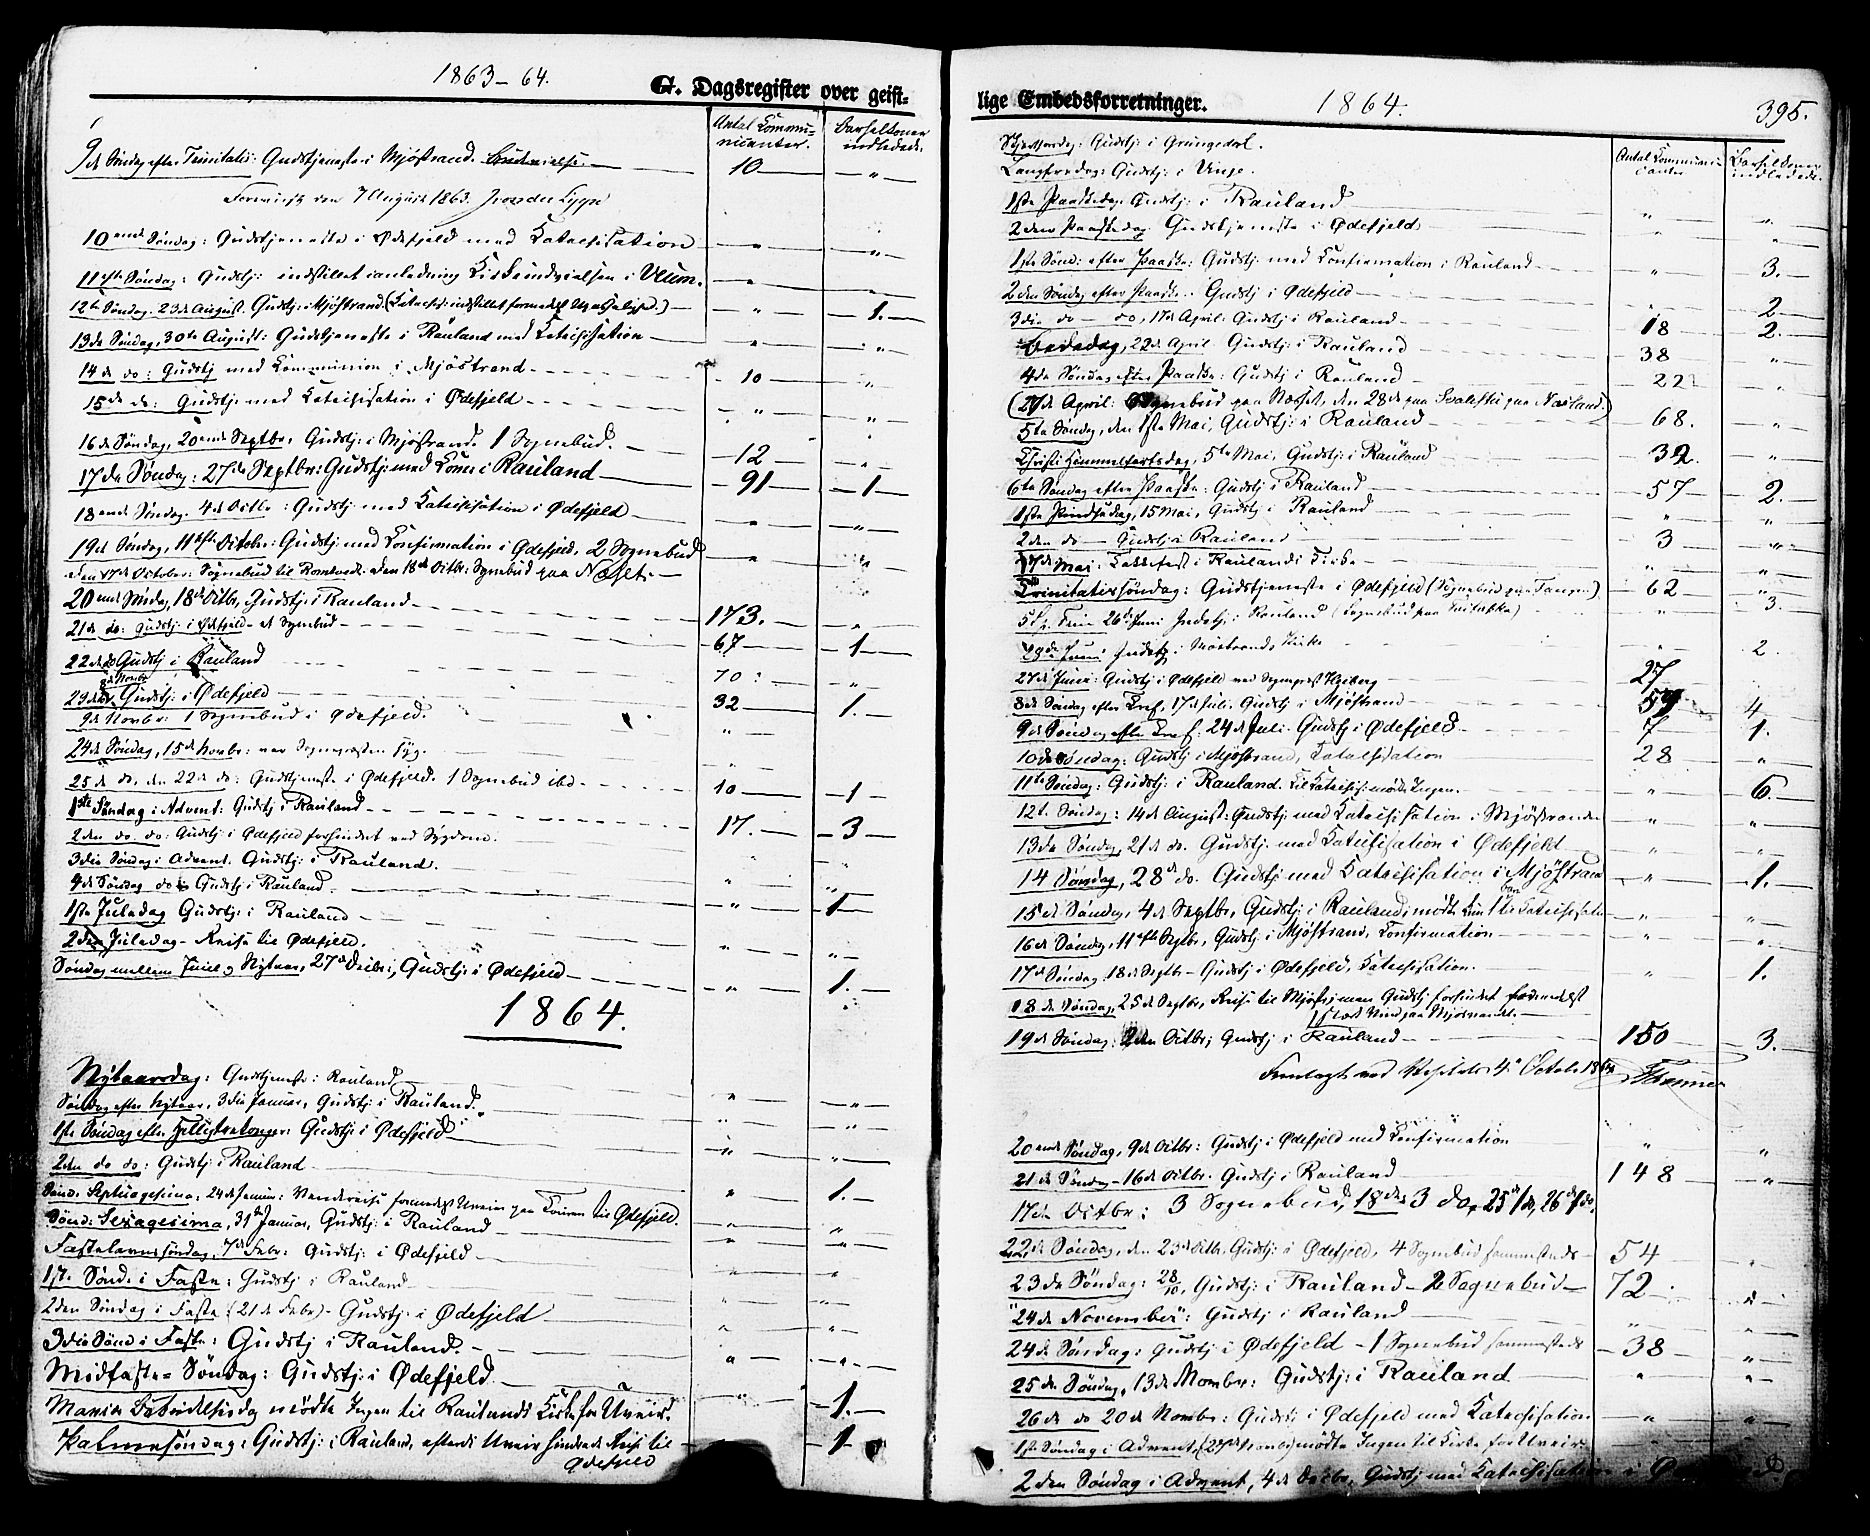 1863-64.
G. Dagsregister over geist-
Antal Commu- Barselkoner
nicanter. indledede.
9de Søndag efter Trinitatis: Gudstjeneste i Mjøstrand. 10 "
den 7 August 1863.
10ende Søndag: Gudstjeneste i Ødefjeld med Katechisation " "
11ifte Søndag: Gudstj: indstillet i anledning Kirkeindvielsen i " "
12te Søndag. 23de August. Gudstj: i Mjøstrand (Katechis: indstillet formedelst ) " 1.
13de Søndag, 30te August: Gudstjeneste i Rauland med Katechisation " "
14de do: Gudstj med Kommunion i Mjøstrand 10 "
15de do: Gudstj: med Katechisation i Ødefjeld " "
16de Søndag, 20ende Septbr, Gudstj: i Mjøstrand. 1 Sognebud. 12 "
17de Søndag: 27de Septbr: Gudstj: med Kom: i Rauland 91 1
18ende Søndag. 4de Octbr: Gudstj med Katechisation i Ødefjeld " "
19de Søndag, 11ifte October: Gudstj: med Konfirmation i Ødefjeld, 2 Sognebud " "
den 17de October: Sognebud til den 18de Octbr: Sognebud paa
20ende Søndag, 18de Octbr, Gudstj: i Rauland 173. "
21de do: Gudstj: i Ødefjeld - et Sognebud 67 1
22de do Gudstj i Rauland 70 "
23de Gudstj: i Ødefjeld 32 1.
9de Novbr: 1 Sognebud i Ødefjeld. "
24de Søndag, 15de Novbr: var Sognepresten syg. "
25de do, den 22de do: Gudstjeneste i Ødefjeld. 1 Sognebud ibd 10 1
1ste Søndag i Advent: Gudstj i Rauland 17. 3
2den do do: Gudstj: i Ødefjeld forhindret ved Sygdom. " "
3die Søndag i Advent. Gudstj: i Rauland. " "
4de Søndag do Gudstj i Rauland. " 1
1ste Juledag Gudstj: i Rauland
2den Juledag - Reise til Ødefjeld. " "
Søndag mellem Juul og Nytaar, 27de Decbr; Gudstj: i Ødefjeld " 1.
1864.
Nytaarsdag: Gudstjeneste: Rauland " "
Søndag efter Nytaar, 3die Januar, Gudstj: i Rauland. " "
1ste Søndag efter Helligtrekonger: Gudstj: i Ødefjeld " "
2den do do: Gudstj: i Rauland " 1.
Sønd. Septuagesima, 24de Januar: formedelst Uveir paa til Ødefjeld. " "
Sønd: Sexagesima, 31te Januar, Gudstj: i Rauland " "
Fastelavnssøndag, 7de Febr: Gudstj: i Ødefjeld " "
1ste Sønd. i Faste: Gudstj i Rauland " "
2den Søndag i Faste (21de Febr) - Gudstj: i Ødefjeld " "
3die Sønd i Faste: Gudstj i Rauland. " "
Midfaste-Søndag: Gudstj: i Ødefjeld " 1.
Mariæ Bebudelsesdag mødte Ingen til Raulands Kirke for Uveir.
Palmesøndag: Gudstj: i Rauland, efterdi Uveir hindrede Reise til 1
Ødefjeld
lige Embedsforretninger. 1864. 395.
Antal Communi- Barselkoner
canter indledede.
Skjærtorsdag: Gudstj: i Grungedal.
Langfredag: Gudstj: i Vinje.
1ste Paaskedag Gudstj: i Rauland " "
2den Paaskedag Gudstjeneste i Ødefjeld " "
1ste Sønd: efter Paaske: Gudstj: med Confirmation i Rauland " 3.
2den Søndag efter Paaske. Gudstj i Ødefjeld " 2
3die do - do, 17de April: Gudstj: i Rauland 18 2.
Bededag, 22de April Gudstj: i Rauland 38 "
4de Søndag efter Paaske: Gudstj i Rauland 22 "
(27de April: Sognebud paa den 28de paa paa )
5te Søndag, den 1ste Mai, Gudstj: i Rauland 68. "
Christi Himmelfartsdag, 5te Mai, Gudstj: i Rauland 32. "
6te Søndag efter Paaske: Gudstj i Rauland 57 2.
1ste Pindsedag, 15 Mai, Gudstj i Rauland " "
2den do - Gudstj i Rauland 3 "
17de Mai: Takkefest i Raulands Kirke " "
Trinitatissøndag: Gudstjeneste i Ødefjeld (Sognebud paa ) 62 "
26de Juni Gudstj: i Rauland (Sognebud paa ) " 3.
Juni Gudstj. i Møstrands Kirke " 2.
27de Juni: Gudstj: i Ødefjeld ved 27
8de Søndag efter Tref, 17de Juli. Gudstj i Mjøstrand 59 4
9de Søndag efter Tref. 24de Juli. Gudstj: i Ødefjeld 7 1.
10de Søndag: Gudstj i Mjøstrand, Katechisation 28 "
11te Søndag: Gudstj: i Rauland. Til Katechis: mødte Ingen. " 6.
12te Søndag: 14de August: Gudstj: med Katechisation i Mjøstranden " "
13de Søndag, 21de do. Gudstj: med Katechisation i Ødefjeld " "
14 Søndag, 28de do. Gudstj: med Katechisation i Mjøstrand " 1.
15de Søndag, 4de Septbr, Gudstj: i Rauland; mødte kun 1 til Katechisation " "
16de Søndag, 11ifte Septbr, Gudstj: i Mjøstrand, Confirmation " "
17de Søndag 18de Septbr - Gudstj: i Ødefjeld, Katechisation. " 1.
18de Søndag, 25de Septbr, Reise til men Gudstj forhindret formedelst
stærk Vind paa Mjøsvandet.
19de Søndag: 2den Octbr; Gudstj: i Rauland 150 3.
Fremlagt ved 4 October 1864
20ende Søndag, 9de Octbr: Gudstj: i Ødefjeld med Konfirmation " "
21de Søndag - 16de Octbr. Gudstj: i Rauland 148 "
17de Octbr: 3 Sognebud, 18de 3 do, 25de 1 do, 26de 1 do.
22de Søndag, den 23de Octbr. Gudstj: i Ødefjeld, 4 Sognebud sammesteds 54 "
23de Søndag: 28/10, Gudstj: i Rauland - 2 Sognebud 72 "
24de November: Gudstj i Rauland " "
24de Søndag: Gudstj i Ødefjeld - 1 Sognebud sammesteds 38 "
25de Søndag, 13de Novbr: Gudstj: i Rauland " "
26de do 20de Novbr: Gudstj: i Ødefjeld med Katechisation " "
1ste Søndag i Advent, (27de ) mødte Ingen til Kirke for Uveir "
2den Søndag i Advent, 4de Decbr, Gudstj med Katechisation i